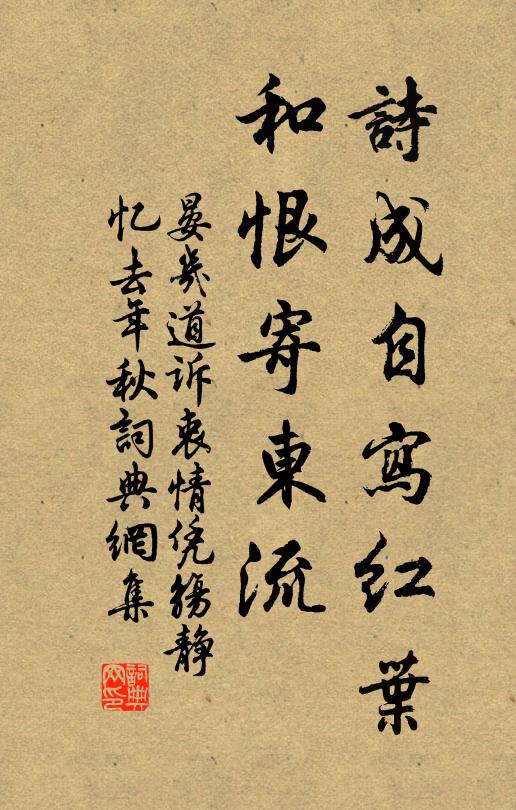 詩成自寫紅葉
和恨寄東流
晏幾道訴衷情凭觴静
忆去年秋詞典網集
詞典
网印